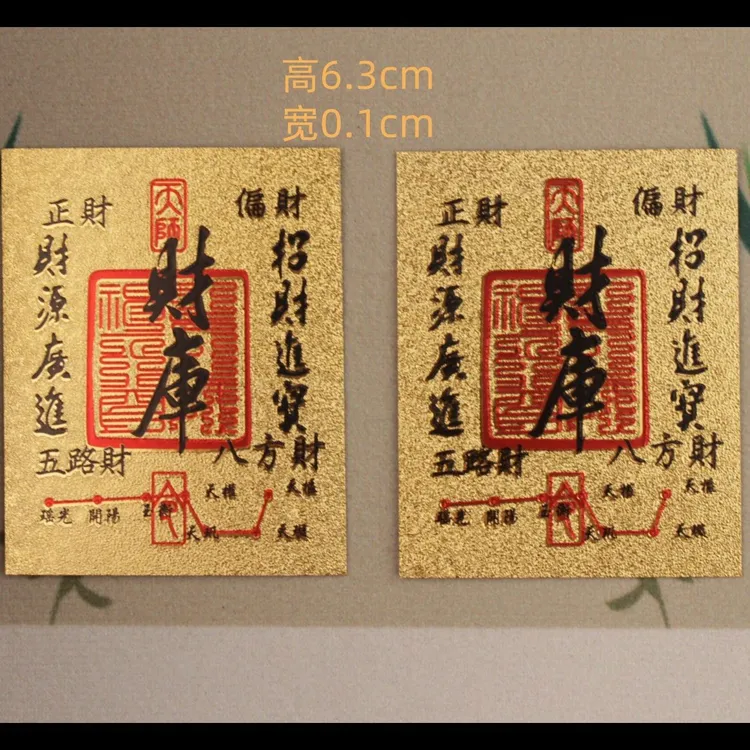 高6.3cm
宽0.1cm
天師
正財
偏財
財源廣進
財庫
招財進寶
五路財
八方財
瑶光
開陽
玉衡
天權
天璇
天机
天師
正財
偏財
財源廣進
財庫
招財進寶
五路財
八方財
瑶光
開陽
玉衡
天權
天机